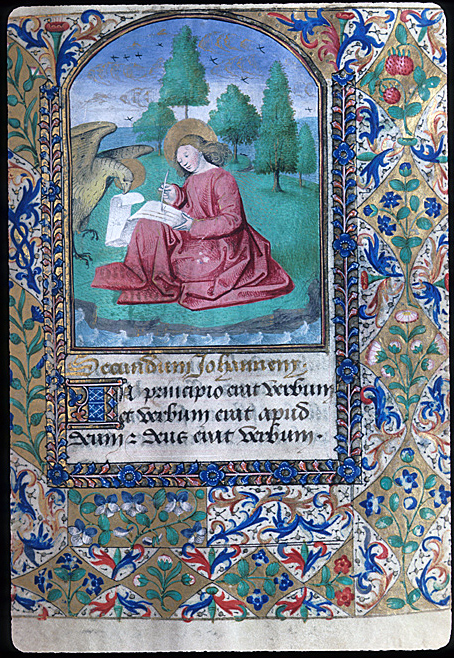 Secundum Johannem.
In principio erat verbum
et verbum erat apud
deum ⁊ deus erat verbum.